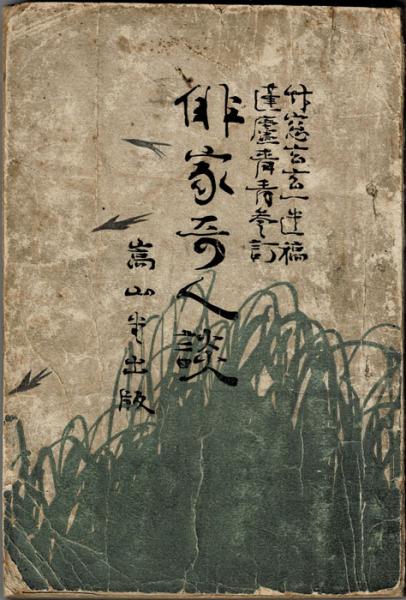 竹窓玄玄一稿
蓬廬青青參訂
俳家奇人談
嵩山堂出版